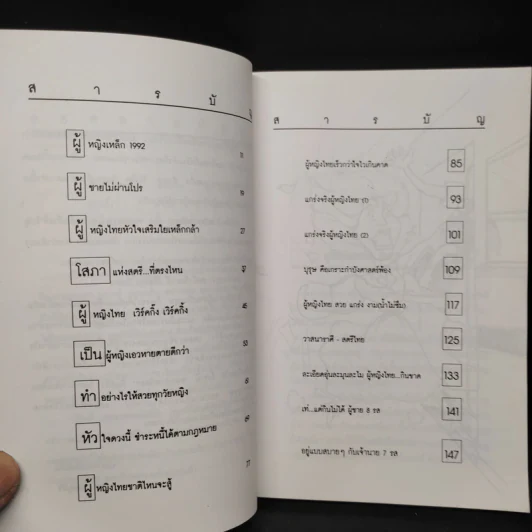 ส า ร บั
ผู้หญิงเหล็ก 1992 11
ผู้ชายไม่ผ่านโปร 19
ผู้หญิงไทยหัวใจเสริมใยเหล็กกล้า 27
โสภาแห่งสตรี...ที่ตรงไหน 37
ผู้หญิงไทย เวิร์คกิ้ง เวิร์คกิ้ง 45
เป็นผู้หญิงเอวหายตายดีกว่า 53
ทำอย่างไรให้สวยทุกวัยหญิง 61
หัวใจดวงนี้ ชำระหนี้ได้ตามกฎหมาย 69
ผู้หญิงไทยชาติไหนจะสู้ 77
ส า ร บั ญ
ผู้หญิงไทยเร็วกว่าใจไวเกินคาด 85
แกร่งจริงผู้หญิงไทย (1) 93
แกร่งจริงผู้หญิงไทย (2) 101
บุรุษ คือเกราะกำบังศาสตร์พ้อง 109
ผู้หญิงไทย สวย แกร่ง งาม(น้ำไม่ซึม) 117
วาสนาราศี - สตรีไทย 125
ละเอียดอุ่นละมุนละไม ผู้หญิงไทย...กินขาด 133
เท่...แต่กินไม่ได้ ผู้ชาย 8 รส 141
อยู่แบบสบายๆ กับเจ้านาย 7 รส 147